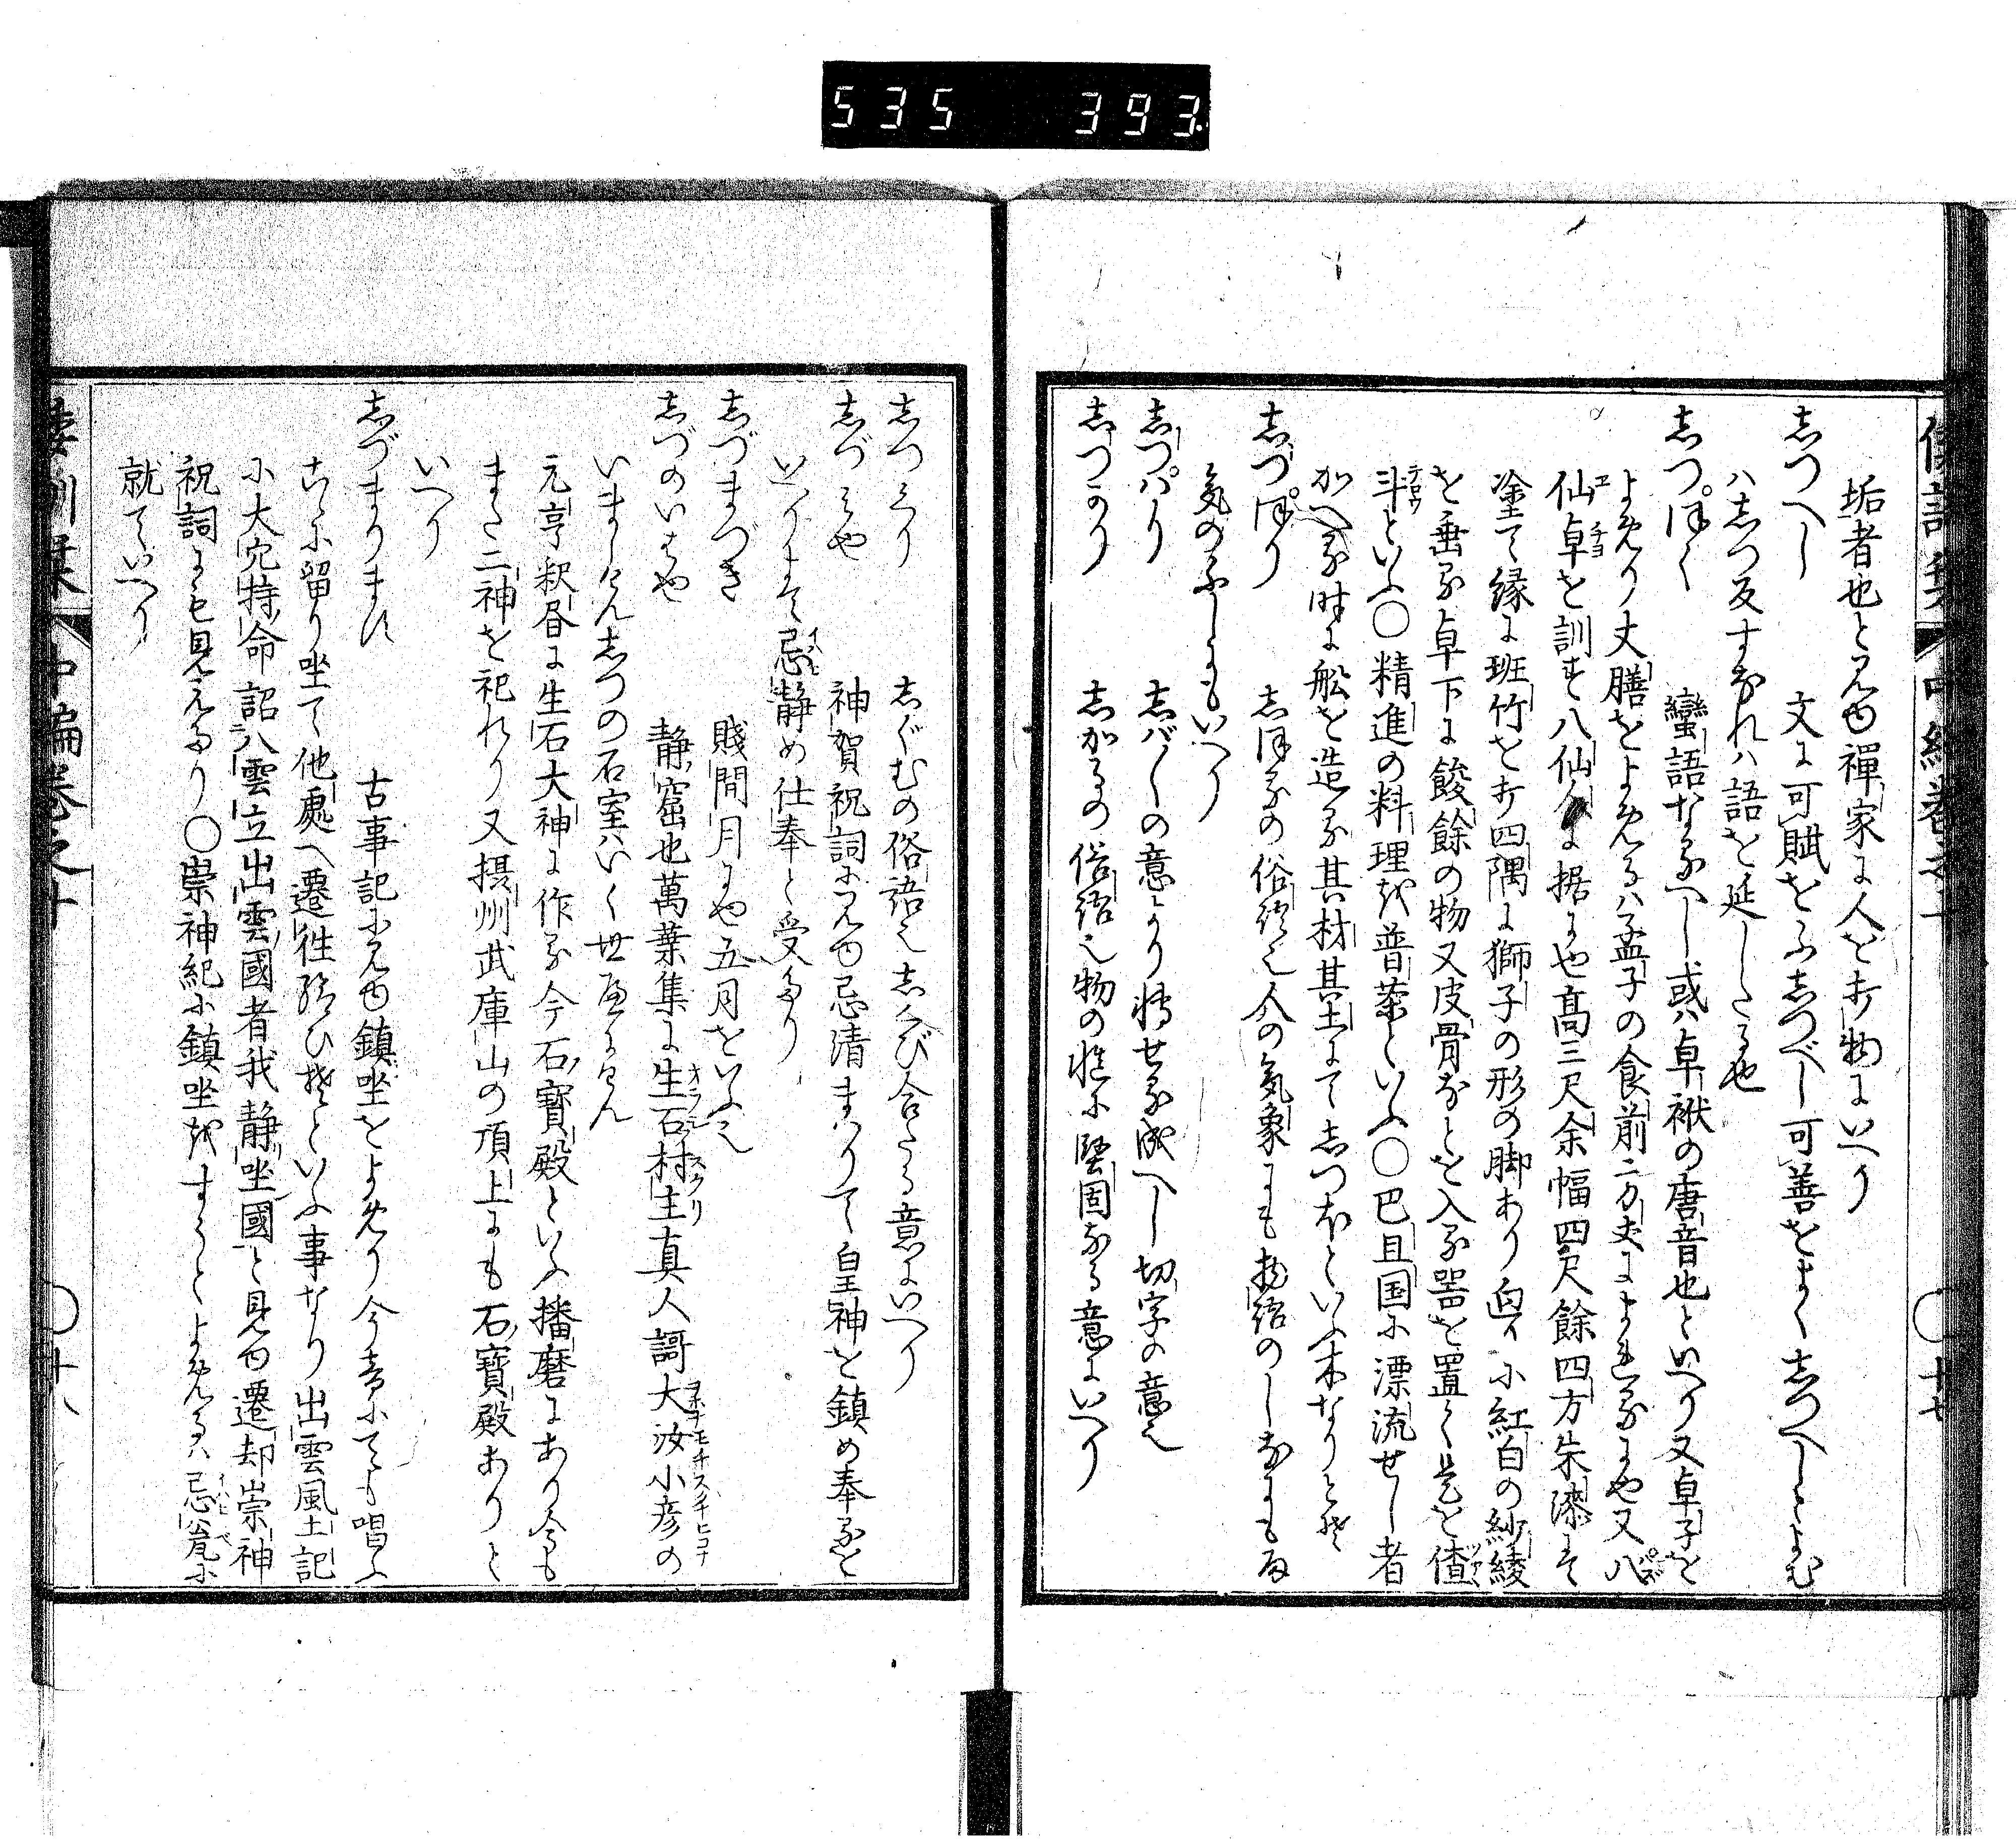 535 393
垢者也と見ゆ禅家に人を打物にいへり
志つへし 文に可賦をふしつべし可善をよくしつへしとよむ
ハしつ反すなれハ語を延したる也
志つぽく 蠻語なるへし或ハ卓袱の唐音也といへり又卓子を
よめり丈膳をよめるハ孟子の食前方丈によれるにや又八
仙卓を訓せり八仙人に据にや高三尺余幅四尺餘四方朱漆にて
塗て縁に班竹を打四隅に獅子の形の脚あり廻りに紅白の紗綾
を垂る卓下に餕餘の物又皮骨なとを入る器を置く是を渣
斗といふ〇精進の料理を普茶といふ〇巴旦国に漂流せし者
かへる時に船を造る其材其土にてしつほくといふ木なりとそ
志づぽり しほるの俗語也人の気象にも物語のしなにも雨
気のふしにもいへり
志つぱり しバしの意より転せる成へし切字の意也
志つかり しかるの俗語也物の性に堅固なる意にいへり
志つくり しぐむの俗語也しくひ合たる意にいへり
志づミや 神賀祝詞に見ゆ忌清まハりて皇神を鎮め奉るを
いへりそを忌静め仕奉と受たり
志づまづき 賤間月にや五月をいふ也
志づのいはや 静窟也萬葉集に生石村主真人謌大汝小彦の
いましけんしつの石室ハいく世へにけん
元亨釈昼に生石大神に作る今石寳殿といふ播磨にあり今も
また二神を祀れり又摂州武庫山の頂上にも石寳殿ありと
いへり
志づまります 古事記に見ゆ鎮坐をよめり今音にても唱ふ
こゝに留り坐て他處へ遷往給ひそといふ事なり出雲風土記
に大穴持命詔八雲立出雲國者我静坐國と見ゆ遷却崇神
祝詞にも見えたり〇崇神紀に鎮坐をすうとよめるハ忌瓮に
就ていへり
倭訓栞 中編巻之十 〇十八